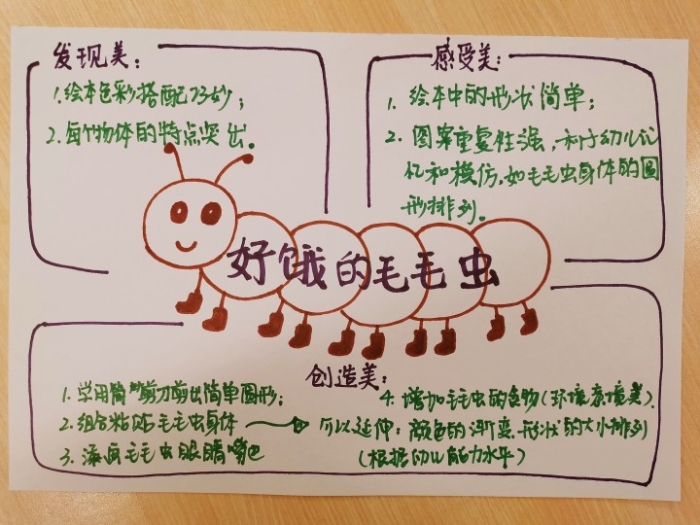 发现美：
1.绘本色彩搭配巧妙；
2.每个物体的特点突出。
感受美：
1. 绘本中的形状简单；
2. 图案重复性强，利于幼儿记
忆和模仿，如毛毛虫身体的圆
形排列。
好饿的毛毛虫
创造美：
1.学用 剪刀剪出简单圆形；
2.组合粘贴毛毛虫身体
3.添画毛毛虫眼睛嘴巴
4.增加毛毛虫的食物(环境 美).
可以延伸：颜色的渐变.形状的大小排列
(根据幼儿能力水平)